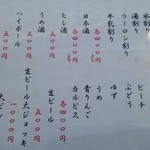 水割り
湯割り
ウーロン割り
牛乳割り
日本酒
各四〇〇円
ヒレ酒
五〇〇円
うめ酒
四〇〇円
ハイボール
ピーチ
ぶどう
ゆず
うめ
青りんご
カルピス
各四〇〇円
生ビール
五〇〇円
生ビール大ジョッキ
一〇〇〇円